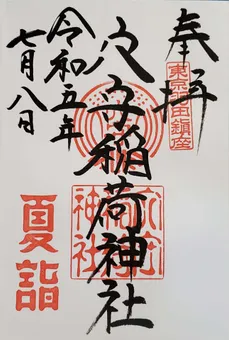 奉拝
東京羽田鎮座
穴守稲荷神社
穴守稲荷神社
令和五年
七月八日
夏詣